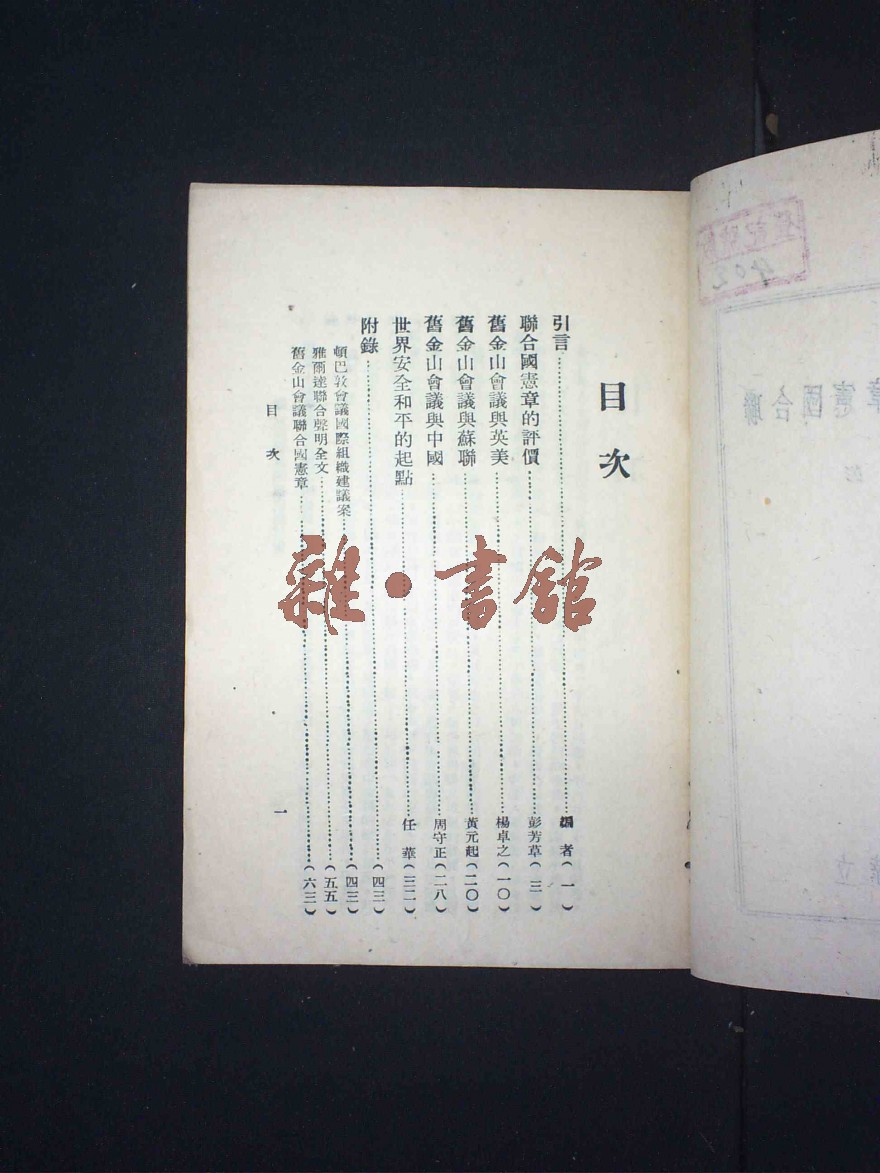 目次
引言……編者(一)
聯合國憲章的評價……彭芳草(三)
舊金山會議與英美……楊卓之(一〇)
舊金山會議與蘇聯……黃元起(二〇)
舊金山會議與中國……周守正(二八)
世界安全和平的起點……任華(三二)
附錄……(四三)
頓巴敦會議國際組織建議案……(四三)
雅爾達聯合聲明全文……(五五)
舊金山會議聯合國憲章……(六三)
目次
一
雜·書館